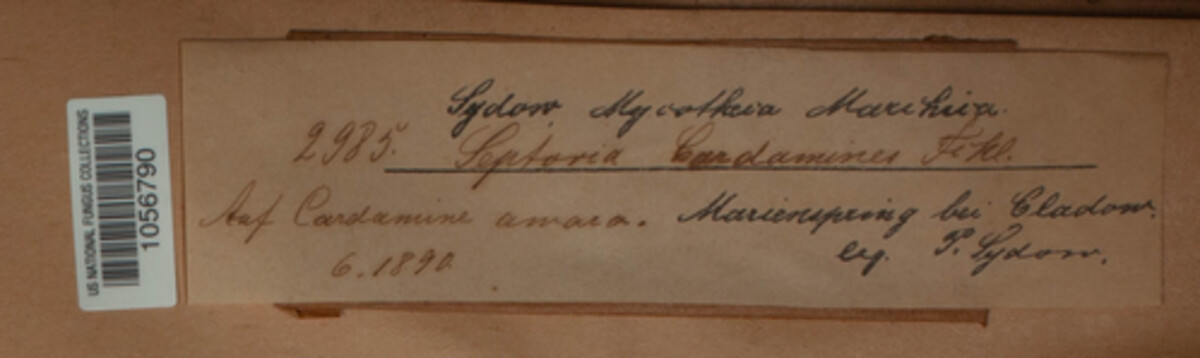 US NATIONAL FUNGUS COLLECTIONS
1056790
Sydow Mycotheca Marchica.
2985. Septoria Cardamines Fckl.
Auf Cardamine amara. Marienspring bei Cladow.
6.1890. leg. P. Sydow.